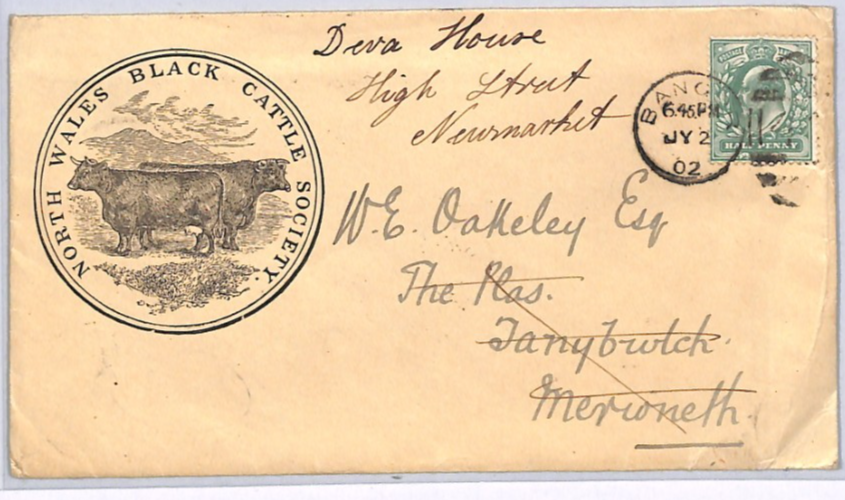 NORTH WALES BLACK CATTLE SOCIETY.
Deva House
High Street
Newmarket
POSTAGE
HALF PENNY
BANG
6.45PM
JY 2
02
W.E. Oakeley Esq
The Plas.
Tanybwlch.
Merioneth.